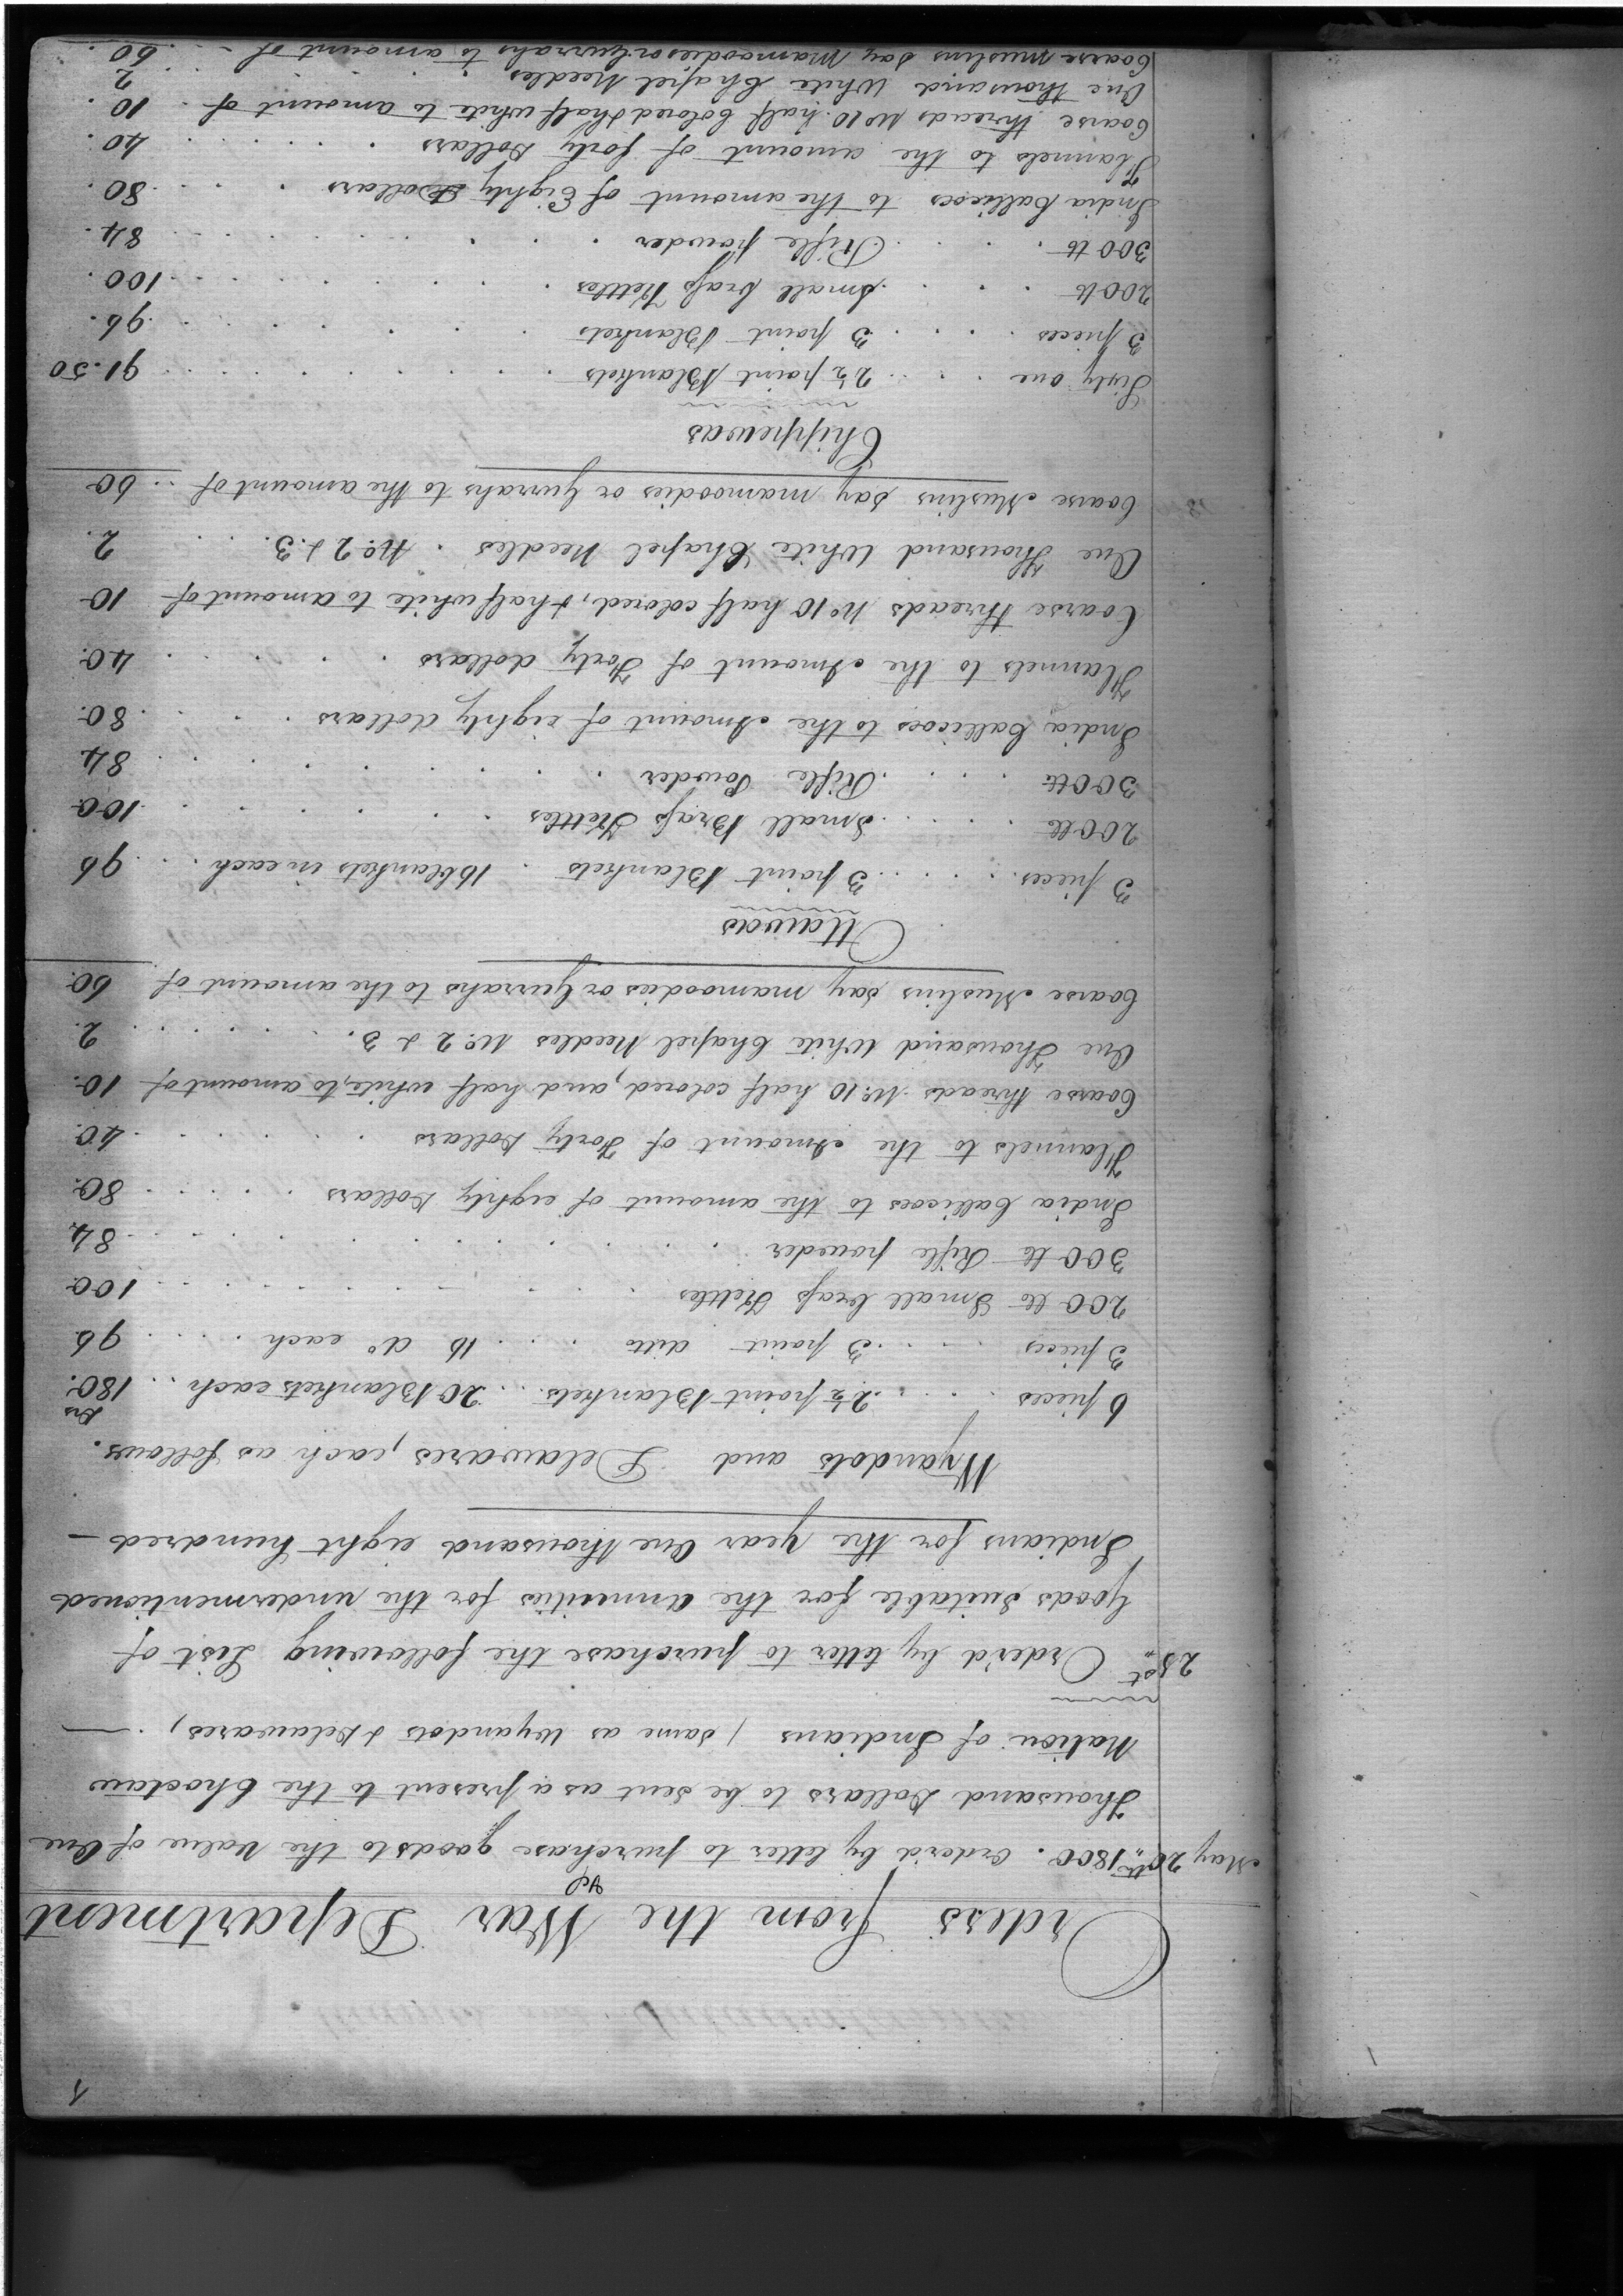 1
Orders from the War Department
May 20th 1800. order'd by letter to purchase goods to the value of One
Thousand Dollars to be sent as a present to the Choctaw
Nation of Indians / same as Wyandots & Delawares, —
28th Order'd by letter to purchase the following List of
Goods suitable for the annuities for the undermentioned
Indians for the year One thousand eight hundred —
Wyandots and Delawares, each as follows.
Drs
6 pieces . . . 2½ point Blankets . . 20 Blankets each . . 180.
3 pieces . . . 3 point ditto . . . 16 do each . . . 96
200 lb Small brass Kettles . . . 100
300 lb Rifle powder . . . 84
India Callicoes to the amount of eighty Dollars . . . 80.
Flannels to the Amount of Forty Dollars . . . 40.
Coarse threads No. 10 half colored, and half white, to amount of 10.
One Thousand White Chapel Needles No. 2 & 3. . . . 2.
Coarse Muslins say mamoodies or Gurrahs to the amount of 60.
Ottawas
3 pieces . . . 3 point Blankets . 16 blankets in each . . . 96
200 lb . . . Small Brass Kettles . . . 100
300 lb . . . Rifle Powder . . . 84
India Callicoes to the Amount of eighty dollars . . . 80.
Flannels to the Amount of Forty dollars . . . 40.
Coarse threads No 10 half colored, & half white to amount of 10
One Thousand White Chapel Needles . No. 2 & 3. . . 2.
Coarse Muslins say mamoodies or Gurrahs to the amount of . . 60
Chippewas
Sixty one . . . 2½ point Blankets . . . 91.50
3 pieces . . . 3 point Blankets . . . 96.
200 lb . . . Small brass Kettles . . . 100.
300 lb . . . Rifle powder . . . 84.
India Callicoes to the amount of Eighty Dollars . . . 80
Flannels to the amount of forty Dollars . . . 40.
Coarse threads No 10. half Colored & half white to amount of . 10.
One thousand White Chapel Needles . . . 2
Coarse muslins say Mamoodies or Gurrahs to amount of - . . 60.